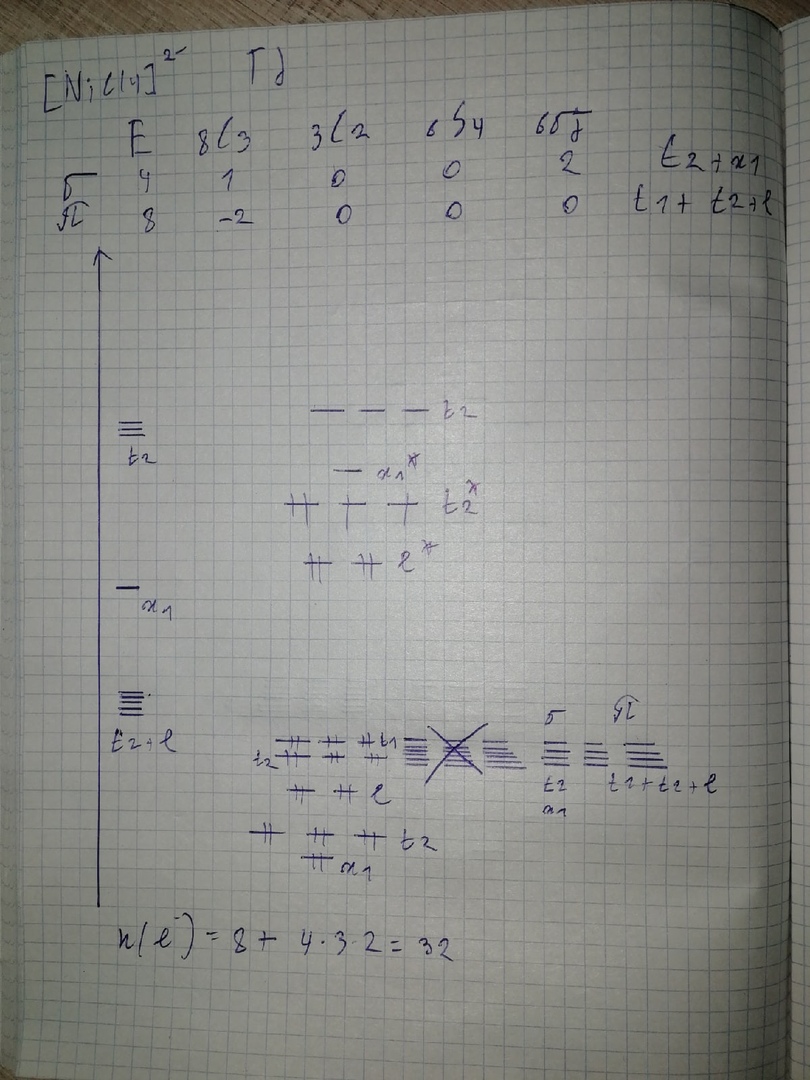 [NiCl4]²⁻ Td
E 8C3 3C2 6S4 6σd
σ 4 1 0 0 2 t2+a1
π 8 -2 0 0 0 t1+t2+e
t2
t2
a1*
t2*
e*
a1
σ π
t2+e
t1
t2
t2 t1+t2+e
a1
e
t2
a1
n(e⁻) = 8 + 4·3·2 = 32